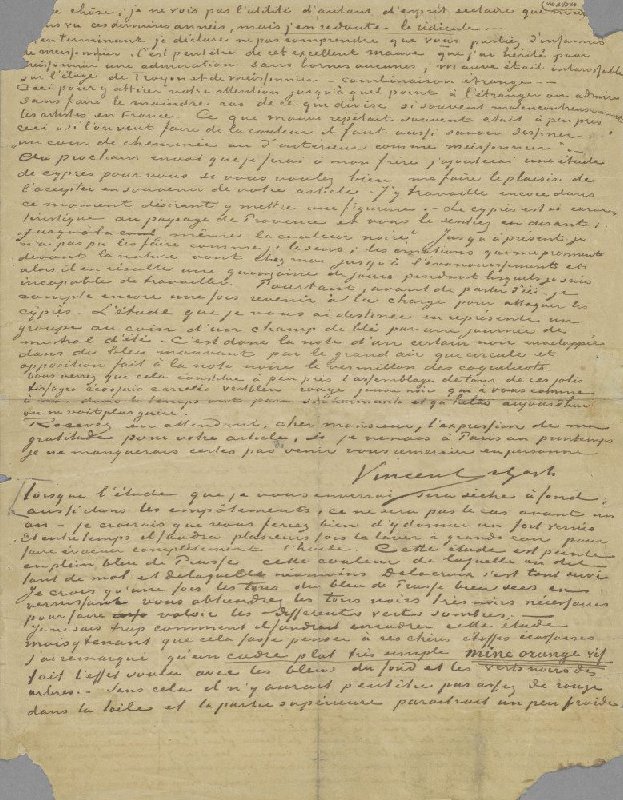 chose, je ne vois pas l'utilité d'autant d'esprit sectaire que
ces dernières années, mais j'en redoute le ridicule.
en terminant je déclare ne pas comprendre que vous parliez d'infamies
de meissonnier. C'est peut-être de cet excellent mauve que j'ai hérité pour
meissonnier une admiration sans bornes aucunes; mauve était intarissable
sur l'éloge de Troyon et de meissonnier — combinaison étrange. —
Ceci pour y attirer votre attention jusqu'à quel point à l'étranger on admire
sans faire le moindre cas de ce qui divise si souvent malencontreusement
les artistes en France. Ce que mauve répétait souvent était à peu près
ceci "si l'on veut faire de la couleur il faut aussi savoir dessiner
un coin de cheminée ou d'intérieur comme meissonnier." —
Au prochain envoi que je ferai à mon frère j'ajouterai une étude
de cyprès pour vous si vous voulez bien me faire le plaisir de
l'accepter en souvenir de votre article. J'y travaille encore dans
ce moment désirant y mettre une figurine. Le cyprès est si carac-
téristique au paysage de Provence et vous le sentiez en disant:
"même la couleur noire". Jusqu'à présent je
n'ai pas pu les faire comme je le sens; les émotions qui me prennent
devant la nature vont chez moi jusqu'à l'évanouissement et
alors il en résulte une quinzaine de jours pendant lesquels je suis
incapable de travailler. Pourtant, avant de partir d'ici je
compte encore une fois revenir à la charge pour attaquer les
cyprès. L'étude que je vous ai destinée en représente un
groupe au coin d'un champ de blé par une journée de
mistral d'été. C'est donc la note d'un certain noir enveloppée
dans du bleu mouvant par le grand air qui circule et
opposition fait à la note noire le vermillon des coquelicots.
Vous verrez que cela constitue à peu près l'assemblage de tons de ces jolis
tissages écossais carrelés vert bleu rouge jaune noir qui à vous comme
à moi dans le temps ont paru si charmants et qu'hélas aujourd'hui
on ne voit plus guère.
Recevez en attendant, cher monsieur, l'expression de ma
gratitude pour votre article. Si je venais à Paris au printemps
je ne manquerais certes pas venir vous remercier en personne.
Vincent v Gogh
Lorsque l'étude que je vous enverrai sera sèche à fond,
aussi dans les empâtements, ce ne sera pas le cas avant un
an — je croirais que vous feriez bien d'y donner un fort vernis
Et entretemps il faudra plusieurs fois la laver à grande eau pour
faire évacuer complètement l'huile. Cette étude est peinte
en plein bleu de Prusse, cette couleur de laquelle on dit
tant de mal et de laquelle néanmoins Delacroix s'est tant servi.
Je crois qu'une fois les tons du bleu de Prusse bien secs en
vernissant vous obtiendrez les tons noirs très noirs nécessaires
pour faire valoir les différents verts sombres. —
je ne sais trop comment il faudrait encadrer cette étude
mais y tenant que cela fasse penser à ces chères étoffes écossaises
j'ai remarqué qu'un cadre plat très simple mine orangé vif
fait l'effet voulu avec les bleus du fond et les verts noirs des
arbres. — Sans cela il n'y aurait peut-être pas assez de rouge
dans la toile et la partie supérieure paraîtrait un peu froide.